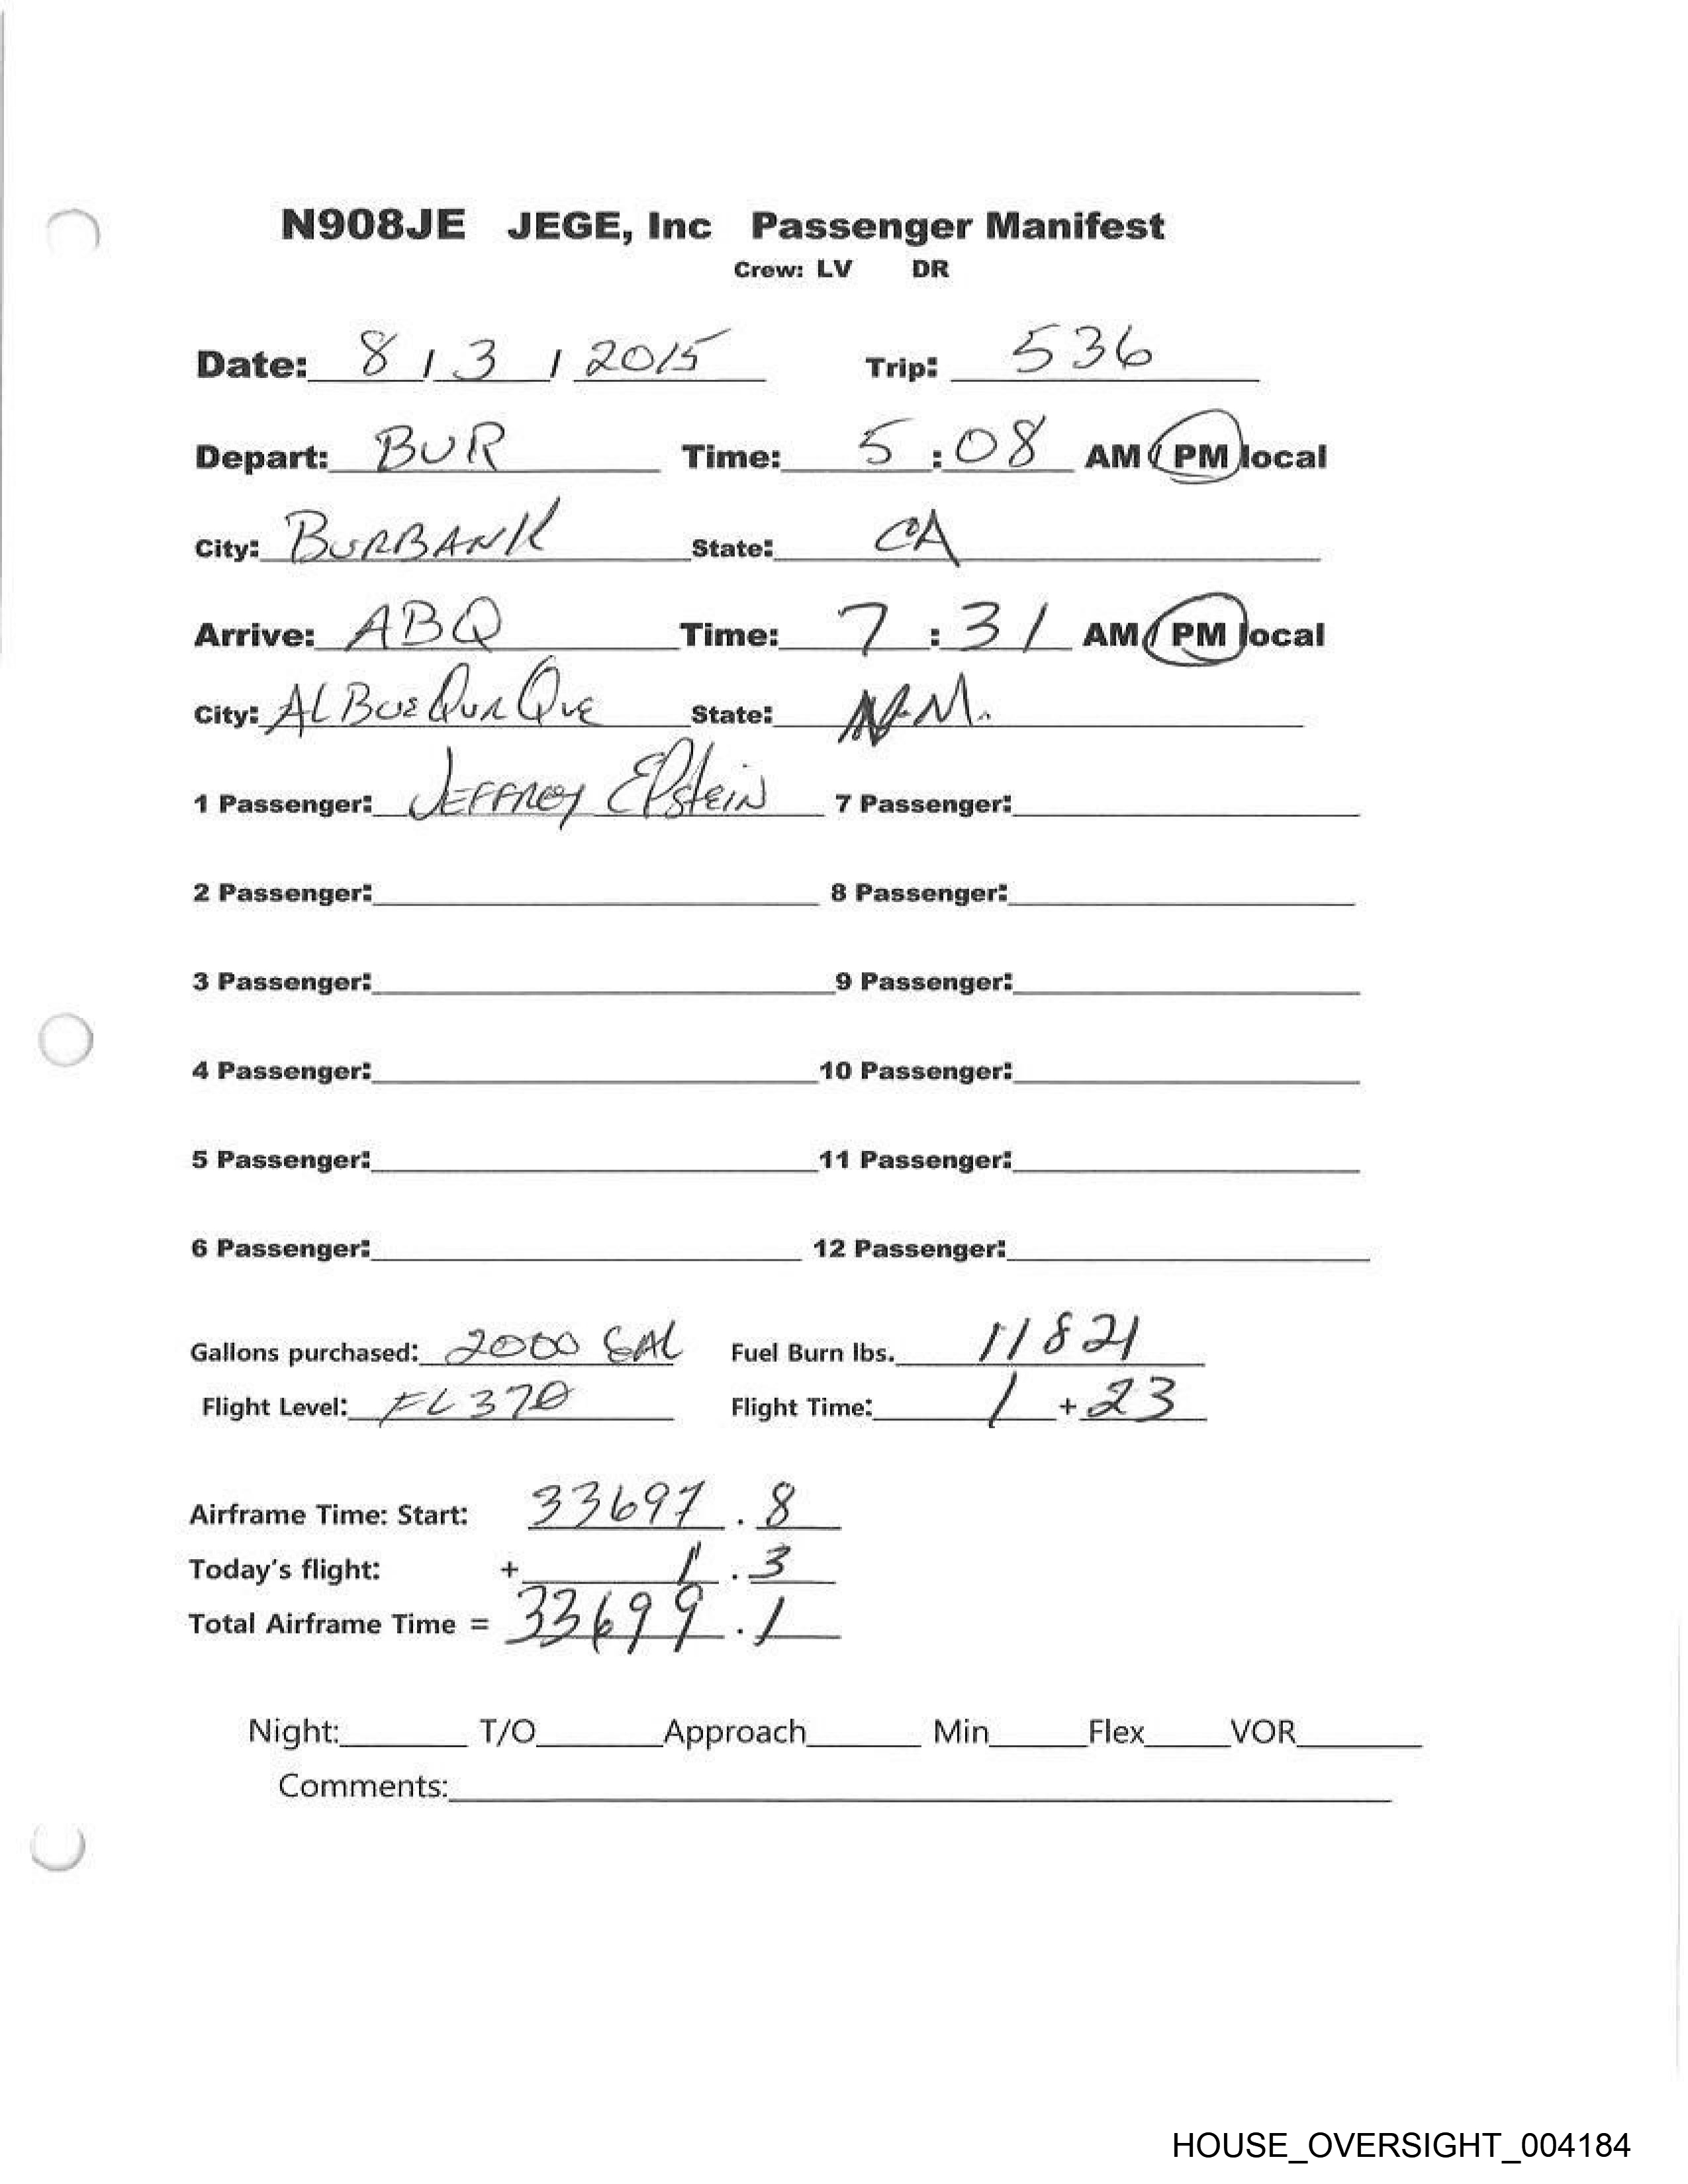 N908JE JEGE, Inc Passenger Manifest
Crew: LV DR
Date: 8 / 3 / 2015 Trip: 536
Depart: BUR Time: 5:08 AM / PM local
City: BURBANK State: CA
Arrive: ABQ Time: 7:31 AM / PM local
City: ALBUEQURQUE State: N.M.
1 Passenger: JEFFREY EPstEIN 7 Passenger:
2 Passenger: 8 Passenger:
3 Passenger: 9 Passenger:
4 Passenger: 10 Passenger:
5 Passenger: 11 Passenger:
6 Passenger: 12 Passenger:
Gallons purchased: 2000 GAL Fuel Burn lbs. 11821
Flight Level: FL370 Flight Time: 1 + 23
Airframe Time: Start: 33697.8
Today's flight: + 1.3
Total Airframe Time = 33699.1
Night: T/O Approach Min Flex VOR
Comments:
HOUSE_OVERSIGHT_004184